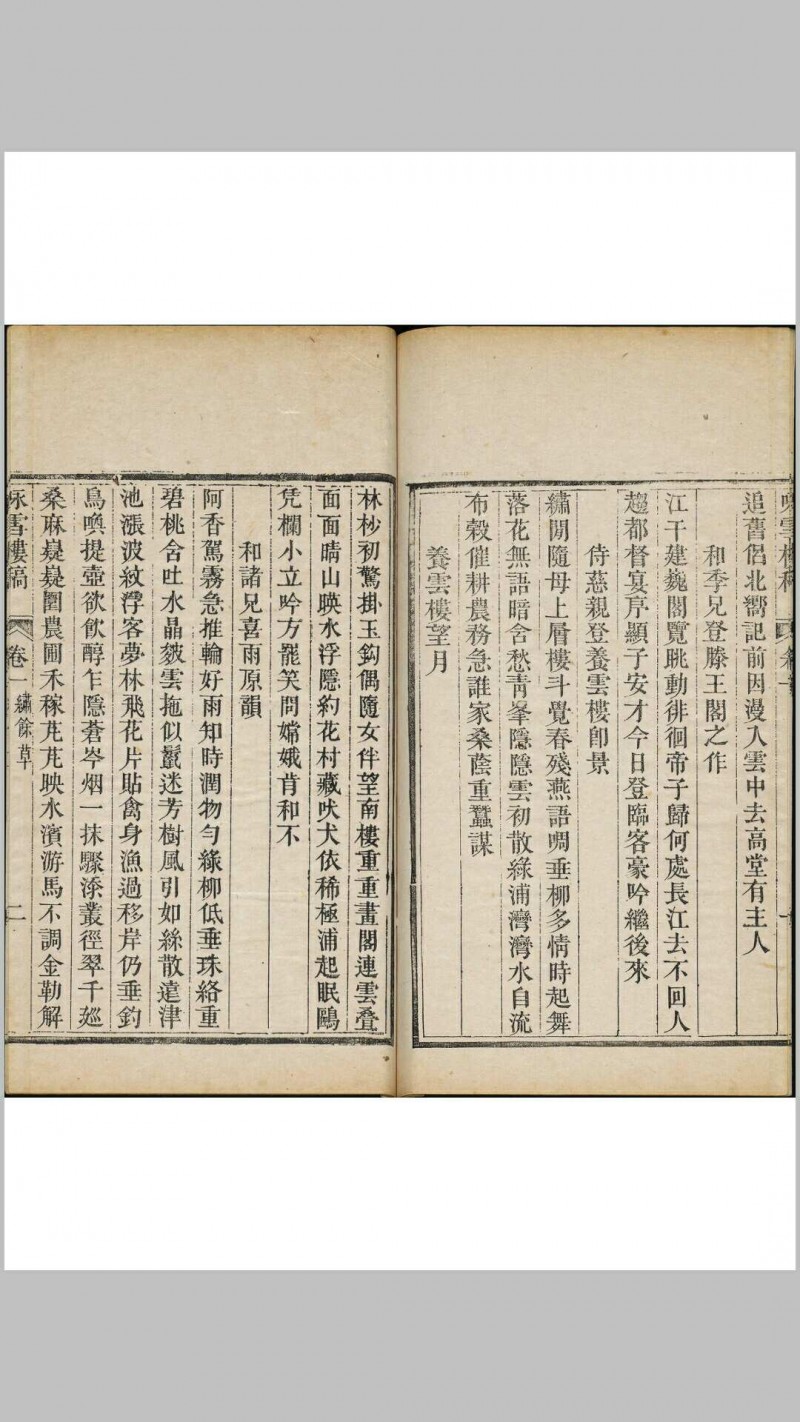 追舊侶北嚮記前因漫入雲中去高堂有主人
和季兄登滕王閣之作
江干建巍閣覽眺動徘徊帝子歸何處長江去不回人
趨都督宴序顯子安才今日登臨客豪吟繼後來
侍慈親登養雲樓卽景
繡閒隨母上層樓斗覺春殘燕語啁垂柳多情時起舞
落花無語暗含愁靑峯隱隱雲初散綠浦灣灣水自流
布穀催耕農務急誰家桑蔭重蠶謀
養雲樓望月
林杪初驚掛玉鈎偶隨女伴望南樓重重畫閣連雲叠
面面晴山暎水浮隱約花村藏吠犬依稀極浦起眠鷗
凭欄小立吟方罷笑問嫦娥肯和不
和諸兄喜雨原韻
阿香駕霧急推輪好雨知時潤物勻綠柳低垂珠絡重
碧桃含吐水晶皴雲拖似鬣迷芳樹風引如絲散遠津
池漲波紋浮客夢林飛花片貼禽身漁過移岸仍垂釣
鳥喚提壺欲飲醇乍隱蒼岑烟一抹驟添叢徑翠千廵
桑麻嶷嶷圍農圃禾稼芃芃映水濱游馬不調金勒解
雪樓稿
卷一繡餘草
二